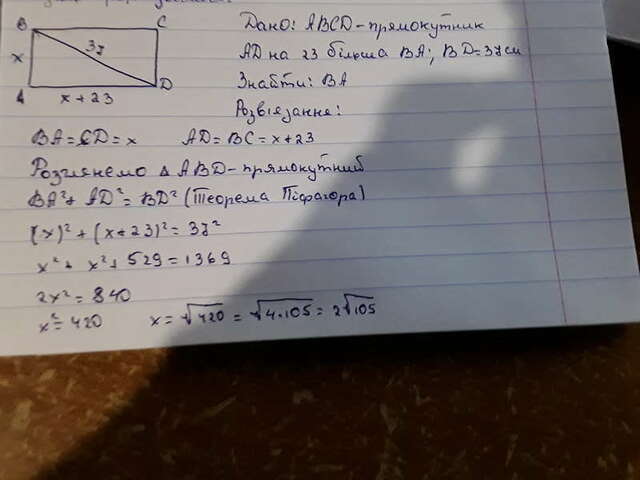 Дано: ABCD - прямокутник
AD на 23 більша BA; BD = 37 см
Знайти: BA
Розвязання:
B
C
37
x
A
x + 23
D
BA = CD = x AD = BC = x + 23
Розглянемо △ ABD - прямокутний
BA² + AD² = BD² (Теорема Піфагора)
(x)² + (x + 23)² = 37²
x² + x² + 529 = 1369
2x² = 840
x² = 420 x = √420 = √4·105 = 2√105